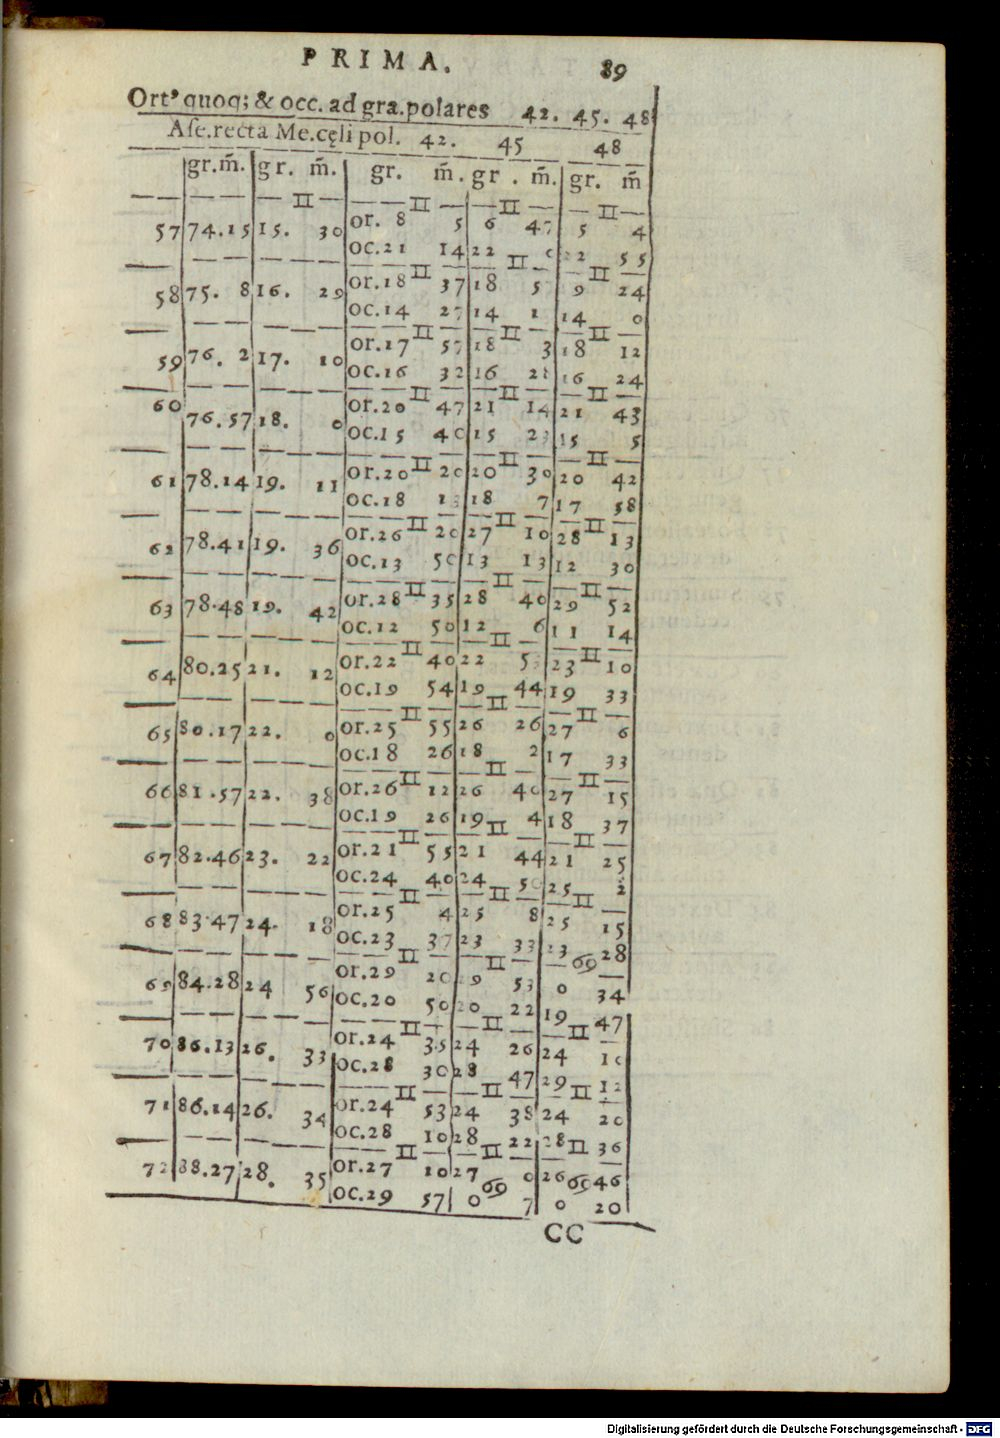 PRIMA. 89
Ort9 quoq; & occ. ad gra.polares 42. 45. 48
Asc.recta Me.cęli pol. 42. 45 48
gr.m̄. gr. m̄. gr. m̄. gr . m̄. gr. m̄
♊ ♊ ♊ ♊
57 74.15 15. 30 or. 8 5 6 47 5 4
oc.21 14 22 22 55
♊ ♊ ♊
58 75. 8 16. 29 or.18 37 18 5 9 24
oc.14 27 14 1 14 0
♊ ♊ ♊
59 76. 2 17. 10 or.17 57 18 3 18 12
oc.16 32 16 16 24
♊ ♊ ♊
60 76.57 18. 0 or.20 47 21 14 21 43
oc.15 40 15 15 5
♊ ♊ ♊
61 78.14 19. 11 or.20 20 20 30 20 42
oc.18 18 7 17 58
♊ ♊ ♊
62 78.41 19. 36 or.26 20 27 10 28 13
oc.13 50 13 13 12 30
♊ ♊ ♊
63 78.48 19. 42 or.28 35 28 40 29 52
oc.12 50 12 6 11 14
♊ ♊ ♊
64 80.25 21. 12 or.22 40 22 23 10
oc.19 54 19 44 19 33
♊ ♊ ♊
65 80.17 22. 0 or.25 55 26 26 27 6
oc.18 26 18 2 17 33
♊ ♊ ♊
66 81.57 22. 38 or.26 12 26 40 27 15
oc.19 26 19 4 18 37
♊ ♊ ♊
67 82.46 23. 22 or.21 55 21 44 21 25
oc.24 40 24 50 25 2
♊ ♊ ♊
68 83.47 24. 18 or.25 4 25 8 25 15
oc.23 37 23 33 23 28
♊ ♊ ♋
69 84.28 24 56 or.29 20 29 53 0 34
oc.20 50 20 22 19 47
♊ ♊ ♊
70 86.13 26. 33 or.24 35 24 26 24 10
oc.28 30 28 47 29 12
♊ ♊ ♊
71 86.14 26. 34 or.24 53 24 38 24 20
oc.28 10 28 22 28 36
♊ ♊ ♊
72 88.27 28. 35 or.27 10 27 0 26 46
♋ ♋
oc.29 57 0 7 0 20
CC
Digitalisierung gefördert durch die Deutsche Forschungsgemeinschaft - DFG